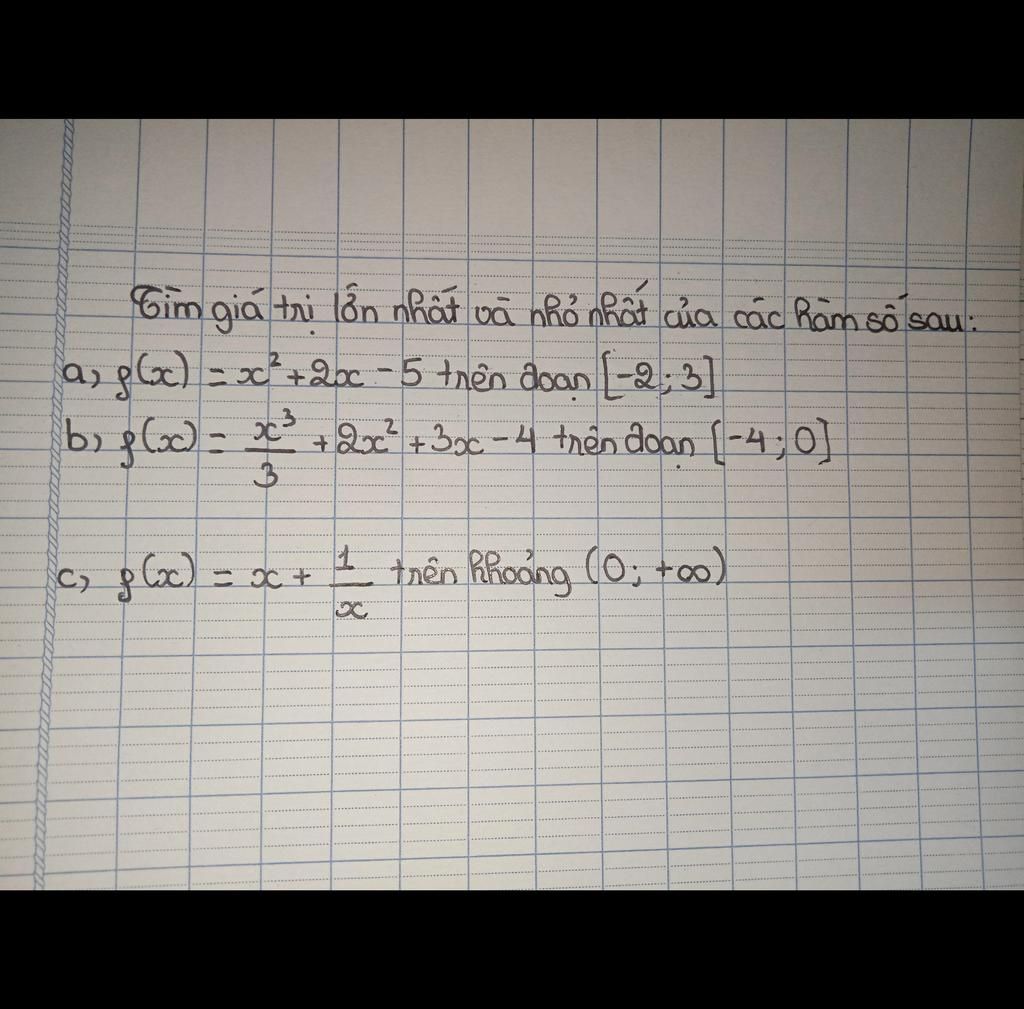 Tìm giá trị lớn nhất và nhỏ nhất của các hàm số sau:
a, f(x) = x² + 2x - 5 trên đoạn [-2; 3]
b, f(x) = x³/3 + 2x² + 3x - 4 trên đoạn [-4; 0]
c, f(x) = x + 1/x trên khoảng (0; +∞)